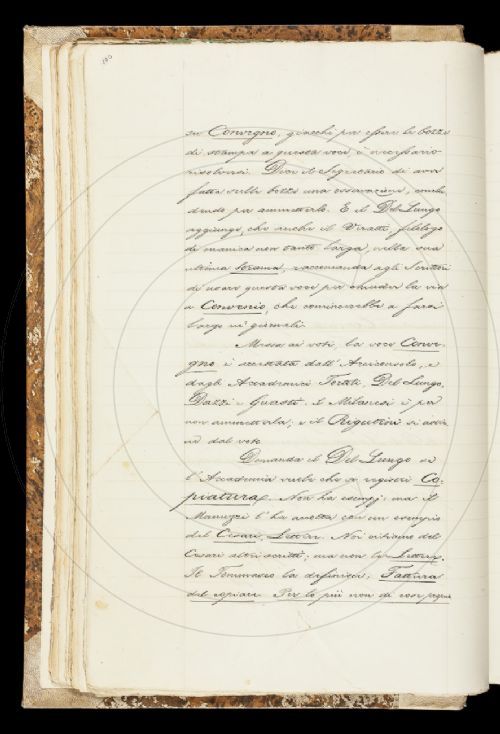 190
su Convegno, giacchè per esser le bozze
di stampa a questa voce, è necessario
risolversi. Dice il Segretario di aver
fatta sulle bozze una osservazione, conclu-
dendo per ammetterlo. E il Del Lungo
aggiunge, che anche il Viani, filologo
di manica non tanto larga, nella sua
ultima, raccomanda agli Scrittori
di usare questa voce per chiuder la via
a Convenio, che comincerebbe a farsi
largo ne' giornali.
Messa ai voti, la voce Conve-
gno è accettata dall'Arciconsolo, e
dagli Accademici Tortoli, Del Lungo,
Dazzi e Guasti. Il Milanesi è per
non ammetterla; e il Rigutini si astie-
ne dal voto.
Domanda il Del Lungo se
l'Accademia vuole che si registri Co-
piatura. Non ha esempj: ma il
Manuzzi l'ha accolta con un esempio
del Cesari, Lettere. Noi citiamo del
Cesari altri scritti, ma non le Lettere.
Il Tommaseo la definisce; Fattura
del copiare. Per lo più non di cose proprie